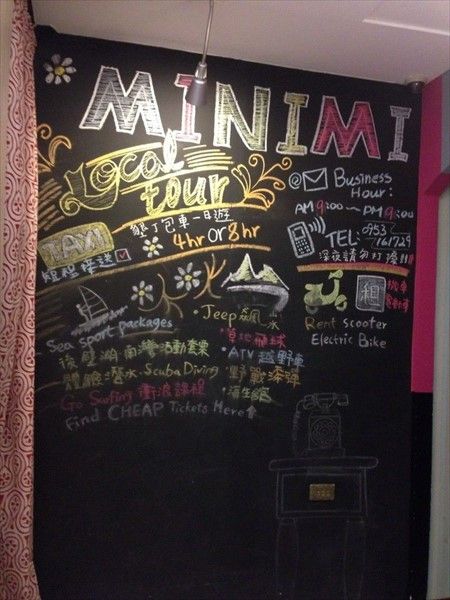 MINIMI
Local
tour
墾丁包車一日遊
4hr OR 8hr
TAXI
短程接送
@ Business
Hour:
AM 9:00 ~ PM 9:00
TEL: 0953
深夜請勿打擾!!!
租 機車
電動車
Rent Scooter
Electric Bike
Sea sport packages
後壁湖.南灣活動套票
體驗潛水.Scuba Diving
Go Surfing 衝浪課程
Find CHEAP Tickets Here
•Jeep飆水
•草地飛球
•ATV 越野車
•野戰漆彈
•海生館